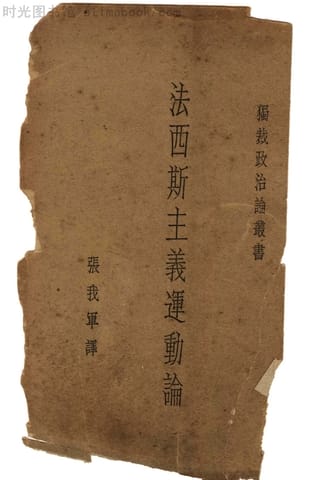 时光图书馆 stimebook.com
獨裁政治論叢書
法西斯主義運動論
張我軍譯